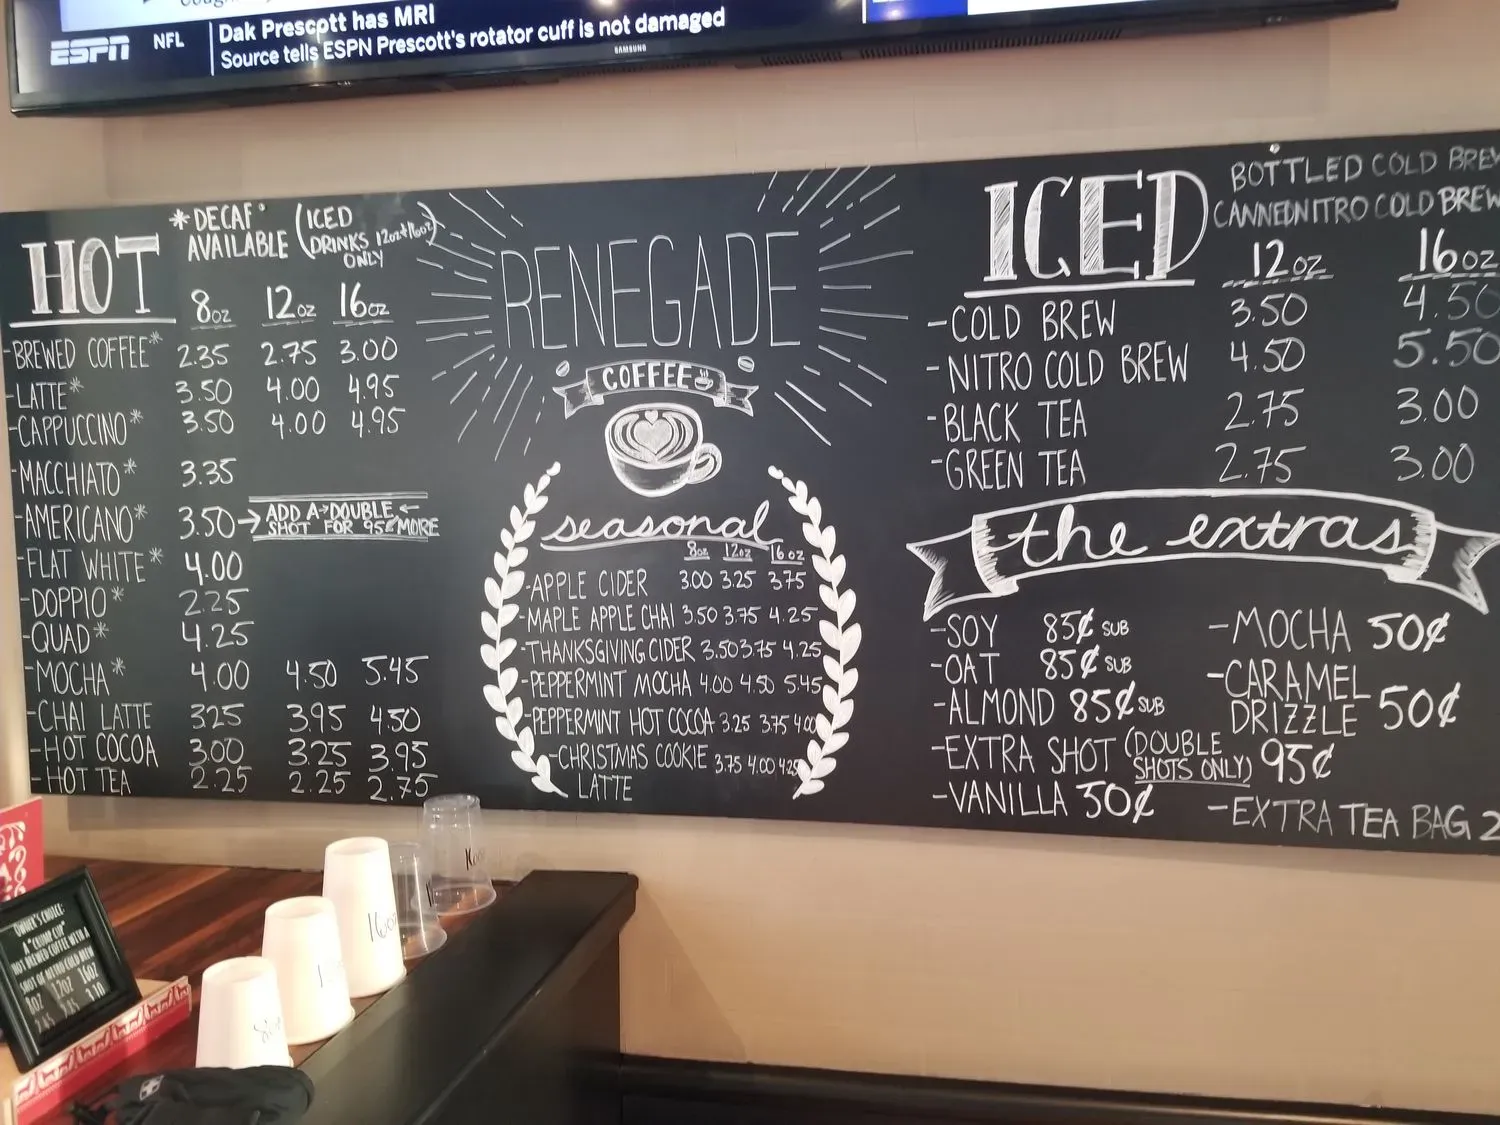 ESPN NFL Dak Prescott has MRI
Source tells ESPN Prescott's rotator cuff is not damaged
SAMSUNG
HOT
*DECAF AVAILABLE
(ICED DRINKS 12oz + 16oz ONLY)
8oz 12oz 16oz
-BREWED COFFEE* 2.35 2.75 3.00
-LATTE* 3.50 4.00 4.95
-CAPPUCCINO* 3.50 4.00 4.95
-MACCHIATO* 3.35
-AMERICANO* 3.50
ADD A DOUBLE
SHOT FOR 95¢ MORE
-FLAT WHITE* 4.00
-DOPPIO* 2.25
-QUAD* 4.25
-MOCHA* 4.00 4.50 5.45
-CHAI LATTE 3.25 3.95 4.50
-HOT COCOA 3.00 3.25 3.95
-HOT TEA 2.25 2.25 2.75
RENEGADE
COFFEE
seasonal
8oz 12oz 16oz
-APPLE CIDER 3.00 3.25 3.75
-MAPLE APPLE CHAI 3.50 3.75 4.25
-THANKSGIVING CIDER 3.50 3.75 4.25
-PEPPERMINT MOCHA 4.00 4.50 5.45
-PEPPERMINT HOT COCOA 3.25 3.75 4.00
-CHRISTMAS COOKIE 3.75 4.00 4.25
LATTE
ICED
BOTTLED COLD BREW
CANNED NITRO COLD BREW
12oz 16oz
-COLD BREW 3.50 4.50
-NITRO COLD BREW 4.50 5.50
-BLACK TEA 2.75 3.00
-GREEN TEA 2.75 3.00
the extras
-SOY 85¢ SUB
-OAT 85¢ SUB
-ALMOND 85¢ SUB
-EXTRA SHOT (DOUBLE SHOTS ONLY) 95¢
-VANILLA 50¢
-MOCHA 50¢
-CARAMEL
DRIZZLE 50¢
-EXTRA TEA BAG
OWNER'S CHOICE:
A "CHUMP CUP"
HOT BREWED COFFEE WITH A
SHOT OF NITRO COLD BREW
8OZ 12OZ 16OZ
16oz